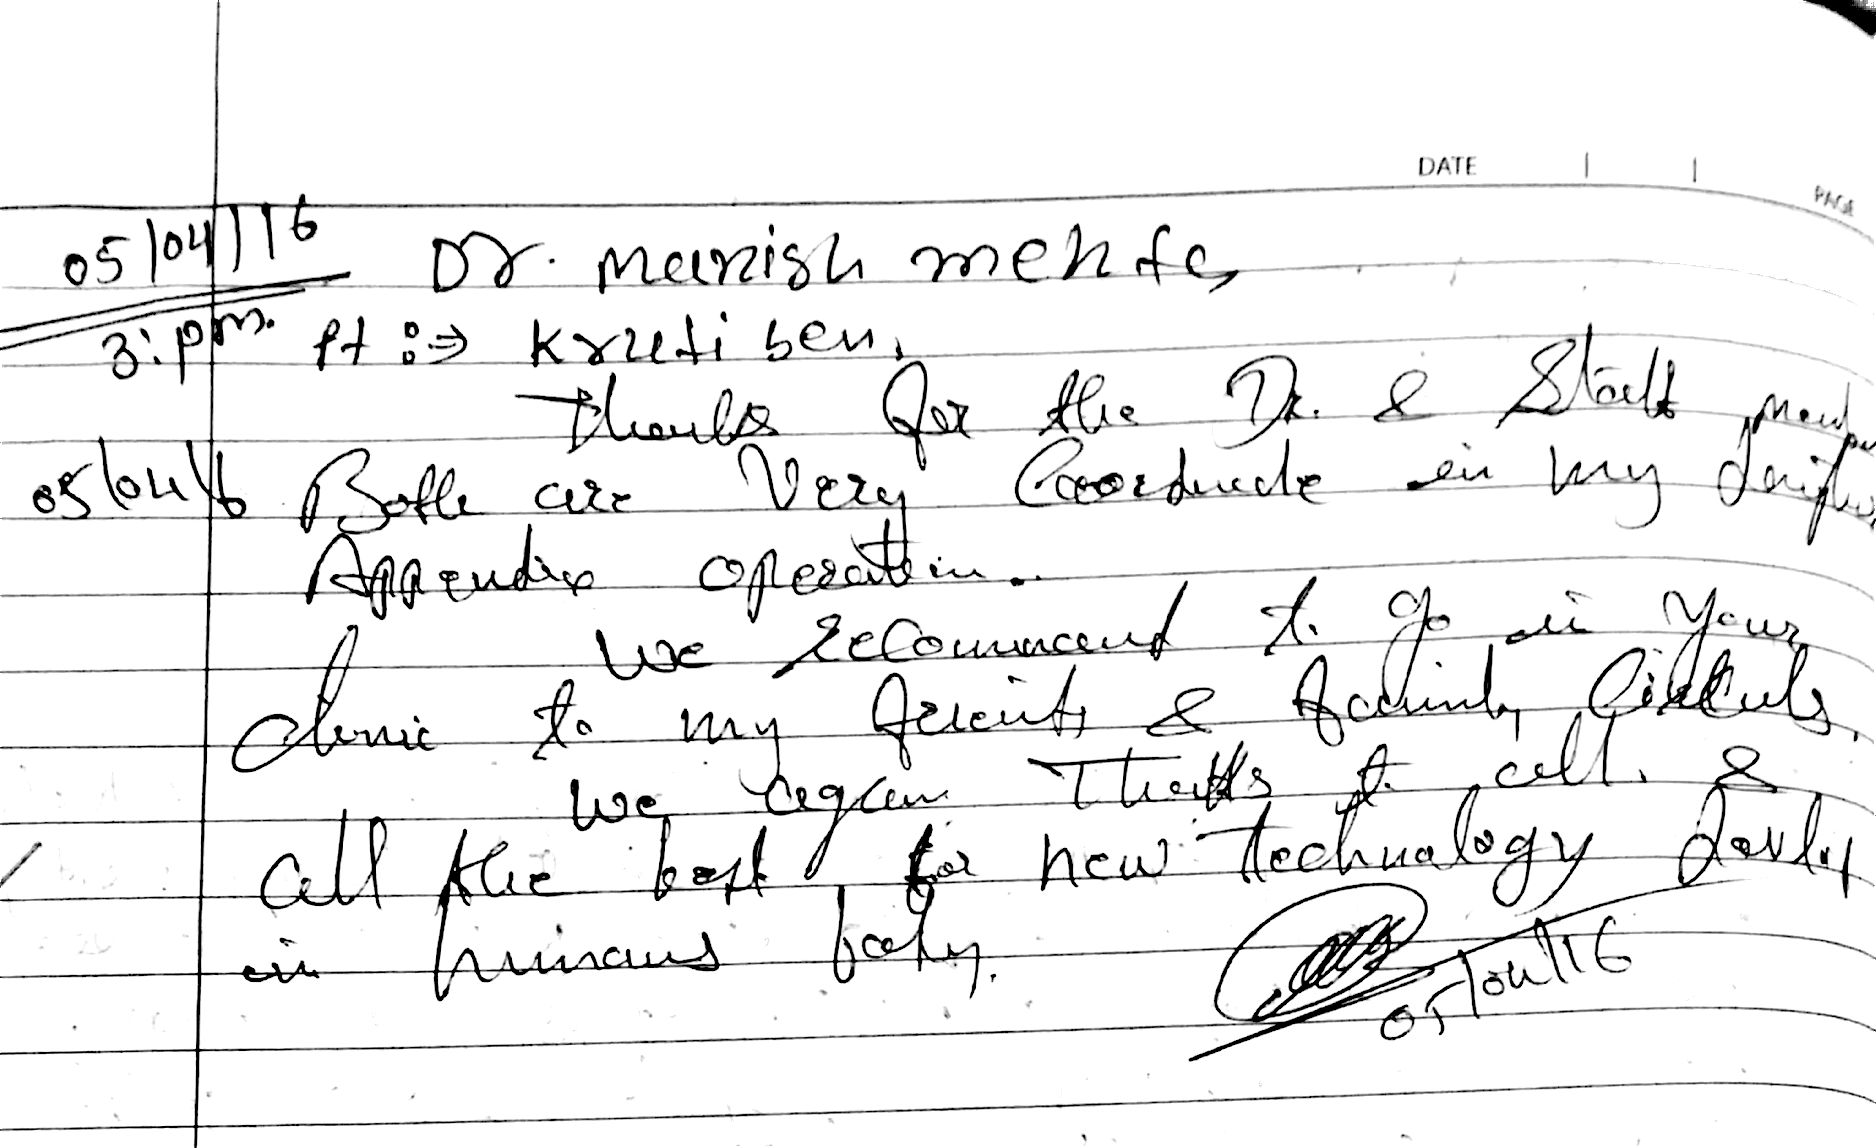 DATE
PAGE
05/04/16 Dr. Manish Mehta
3: pm. Pt :→ Krutiben.
Thanks for the Dr. & Staff
05/04/16 Both are Very Coordinate in my
Appendix operation..
We recommend to go in Your
clinic to my friends & family Circuls.
We again Thanks to all. &
all the best for new technology
in humans body.
05/04/16